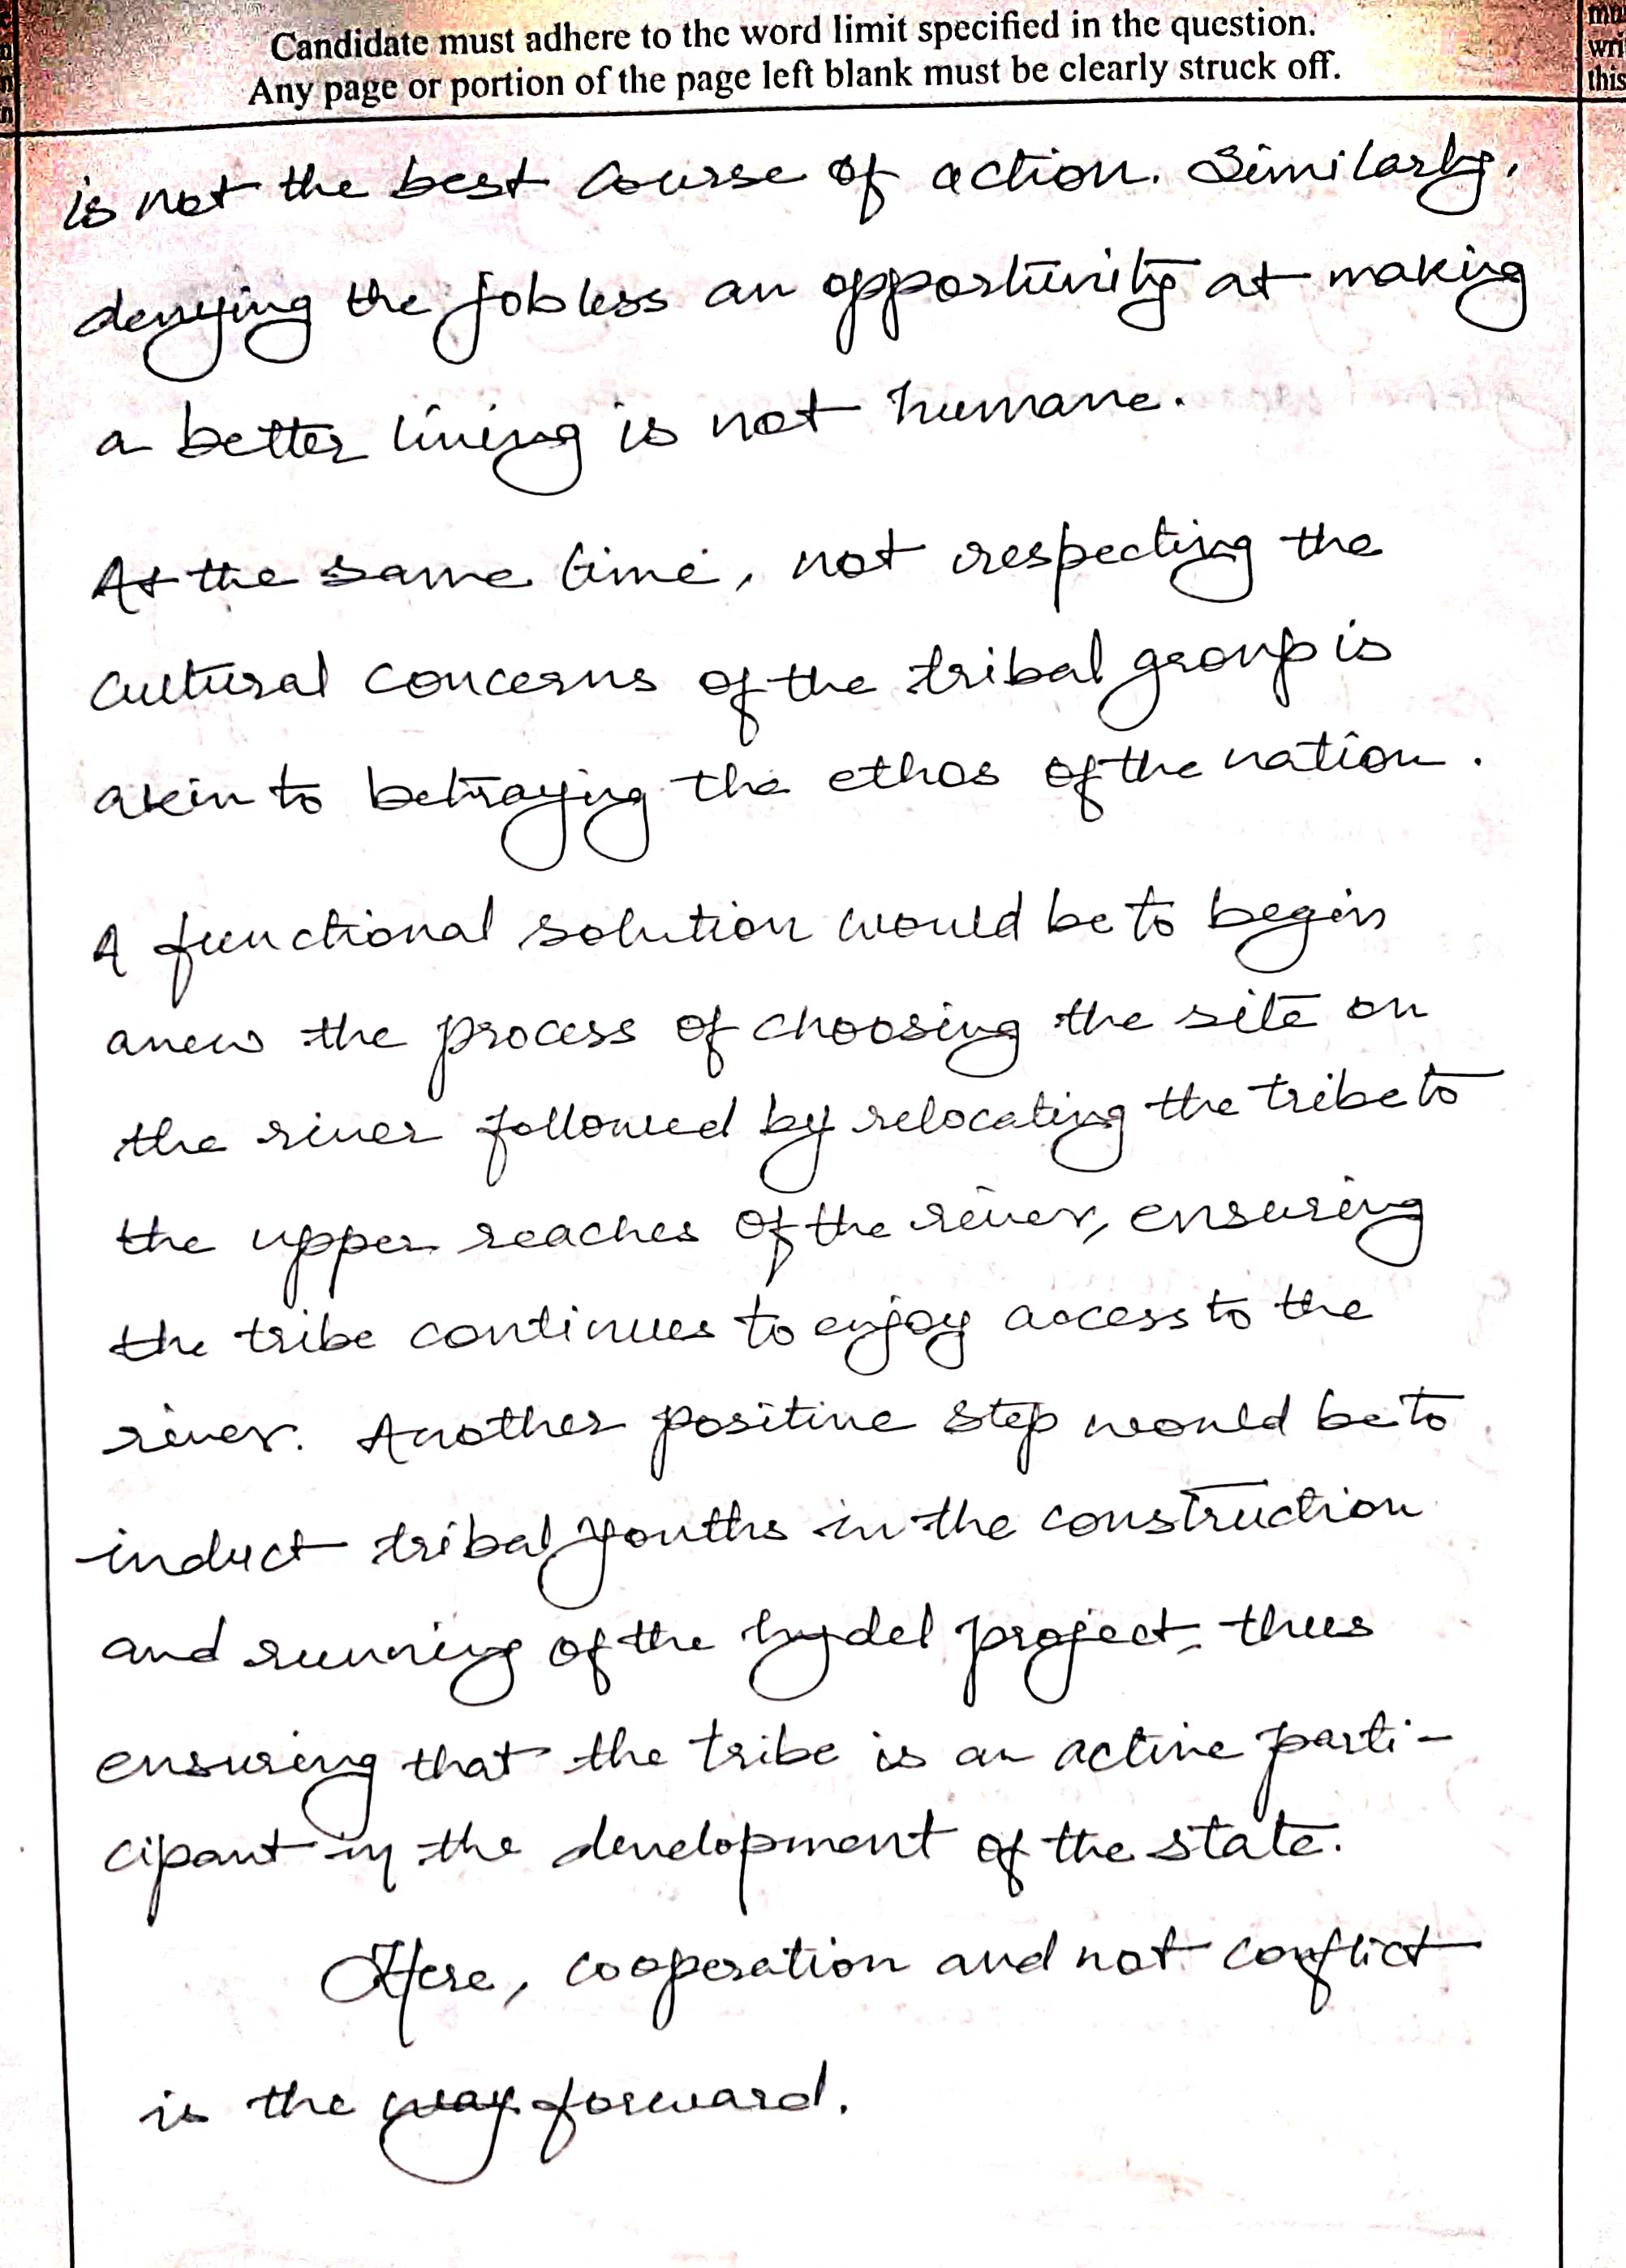 Candidate must adhere to the word limit specified in the question.
Any page or portion of the page left blank must be clearly struck off.
wri
this
is not the best course of action. Similarly,
denying the jobless an opportunity at making
a better living is not humane.
At the same time, not respecting the
cultural concerns of the tribal group is
akin to betraying the ethos of the nation.
A functional solution would be to begin
anew the process of choosing the site on
the river followed by relocating the tribe to
the upper reaches of the river, ensuring
the tribe continues to enjoy access to the
river. Another positive step would be to
induct tribal youths in the construction
and running of the hydel project, thus
ensuring that the tribe is an active parti-
cipant in the development of the state.
Here, cooperation and not conflict
is the way forward.